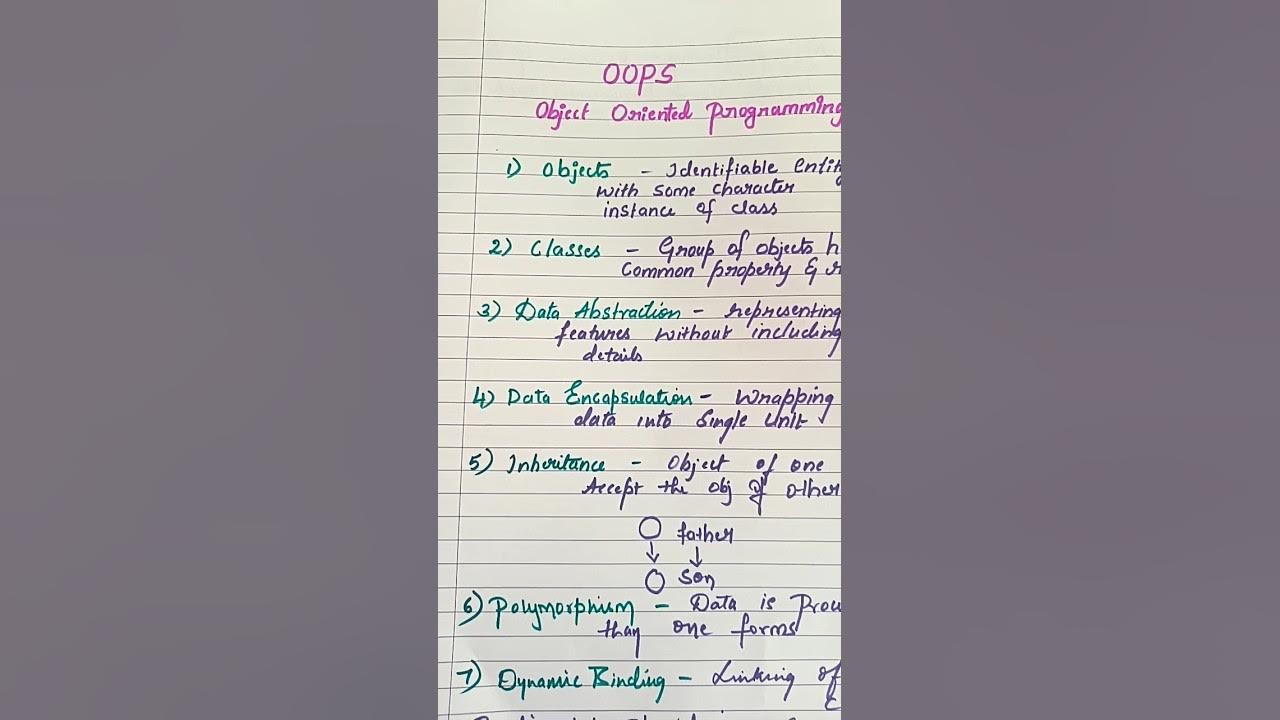 OOPS
Object Oriented Programming
1) Objects - Identifiable Entit
with some character
instance of class
2) Classes - Group of objects h
Common property & r
3) Data Abstraction - representing
features without including
details
4) Data Encapsulation - Wrapping
data into Single Unit
5) Inheritance - Object of one
Accept the obj of other
father
son
6) Polymorphism - Data is Prov
than one forms
7) Dynamic Binding - Linking of